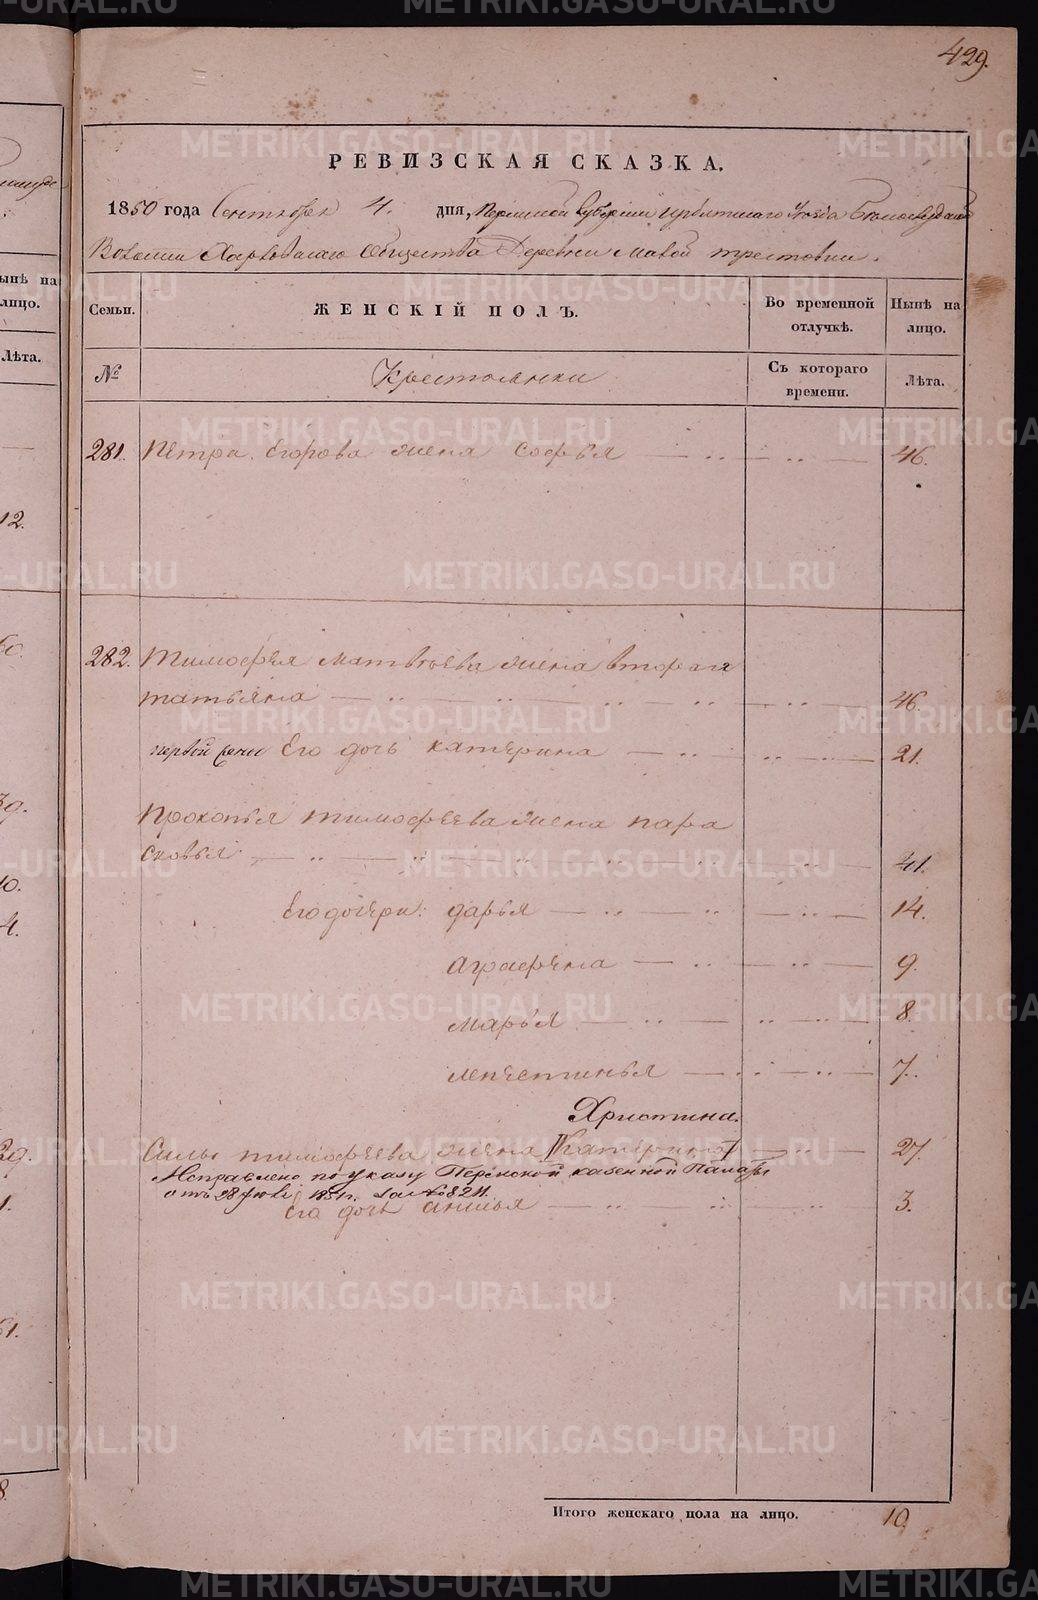 429.
РЕВИЗСКАЯ СКАЗКА.
1850 года Сентября 4. дня, Пермской Губернии Ирбитскаго Уезда Белослудской
Волости Харловскаго Общества Деревни Малой трестовки.
Семьи. ЖЕНСКІЙ ПОЛЪ. Во временной отлучкѣ. Нынѣ на лицо.
№ Крестьянки Съ котораго времени. Лѣта.
281. Петра Егорова жена Софья 46.
282. Тимофея Матвѣева жена вторая
татьяна 46.
первой жены Его дочь катерина 21.
Прокопья тимофеева жена пара
сковья 41.
Его дочери: дарья 14.
аграфена 9.
марья 8.
7.
Христина.
Силы тимофеева жена [Катерина] 27.
Исправлено по указу Пермской казенной Палаты
отъ 28 1851 г. за № 8211.
Его дочь анисья 3.
Итого женскаго пола на лицо. 10
ынѣ на
лицо.
Лѣта.
12.
39.
4.
METRIKI.GASO-URAL.RU